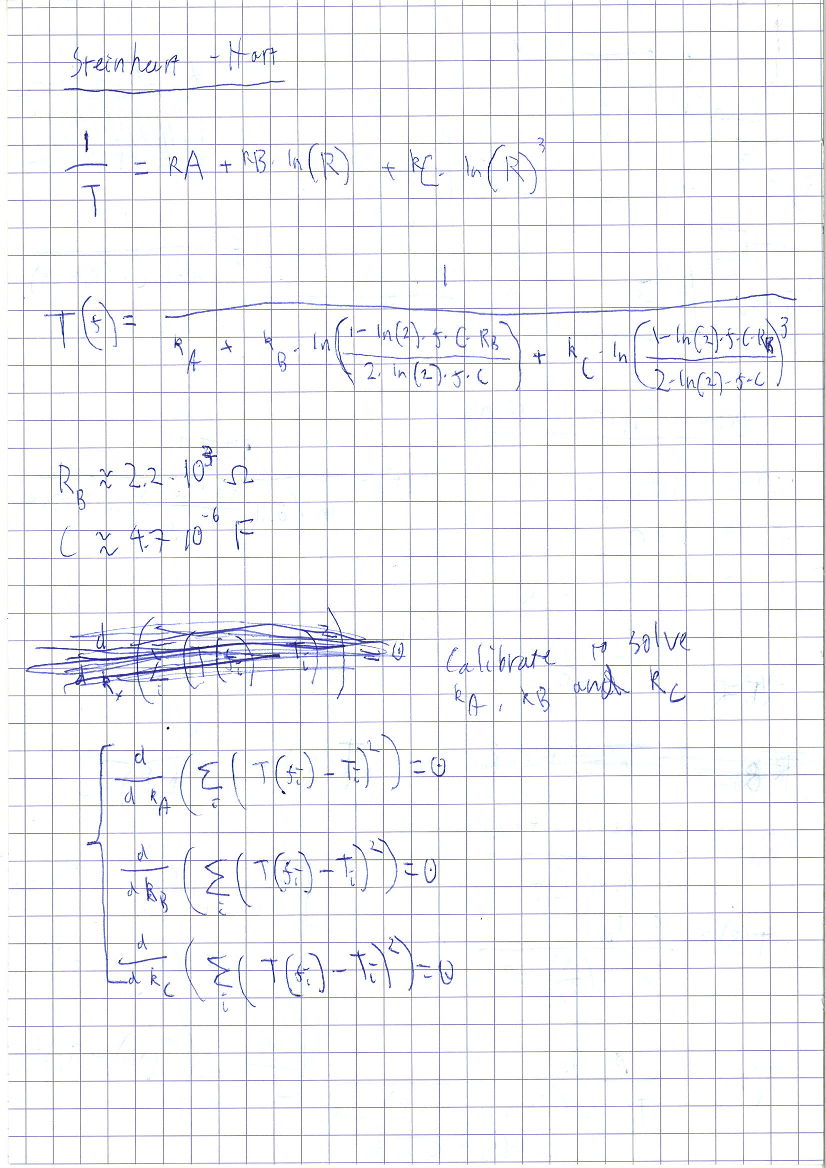 Steinhart - Hart
1/T = kA + kB · ln(R) + kC · ln(R)^3
T(f) = 1 / (k_A + k_B · ln((1 - ln(2)·f·C·R_B) / (2·ln(2)·f·C)) + k_C · ln((1 - ln(2)·f·C·R_B) / (2·ln(2)·f·C))^3)
R_B ≈ 2.2 · 10^3 Ω
C ≈ 4.7 10^-6 F
Calibrate to solve
k_A, kB and k_C
d/dk_A (Σ_i (T(f_i) - T_i)^2) = 0
d/dk_B (Σ_i (T(f_i) - T_i)^2) = 0
d/dk_C (Σ_i (T(f_i) - T_i)^2) = 0